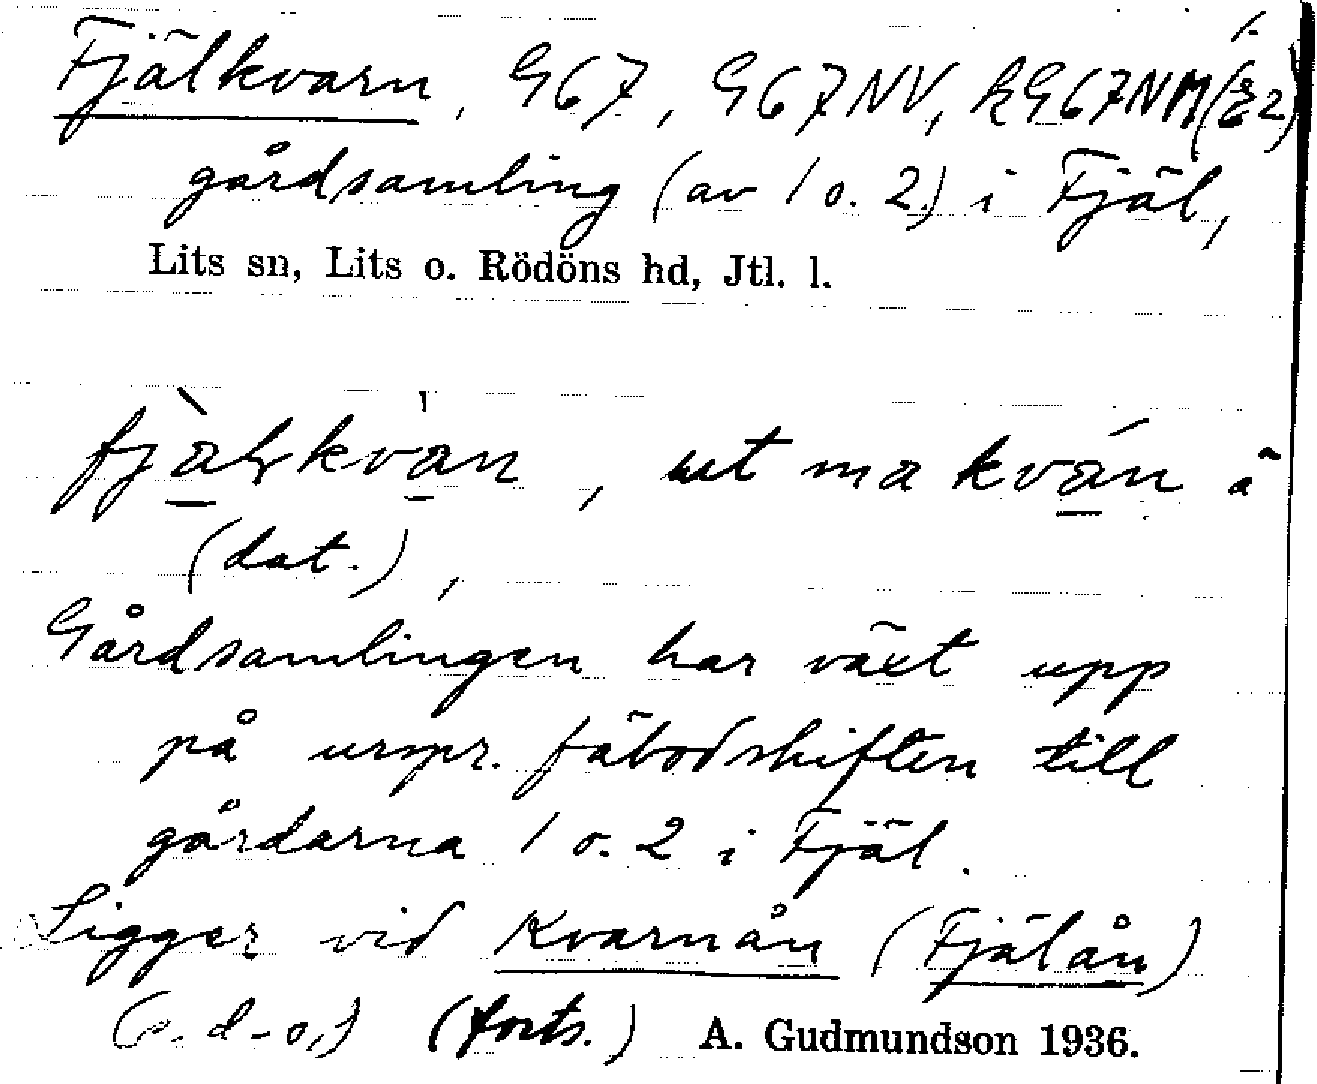 1.
Fjälkvarn, G67, G67NV, kG67NM(g2)
gårdsamling (av 1 o. 2.) i Fjäl,
Lits sn, Lits o. Rödöns hd, Jtl. l.
fjälkvàn, ut ma kván å
(dat.),
Gårdsamlingen har växt upp
på urspr. fäbodskiften till
gårdarna 1 o. 2 i Fjäl.
Ligger vid Kvarnån (Fjälån)
(s. d-o,) (forts.) A. Gudmundson 1936.